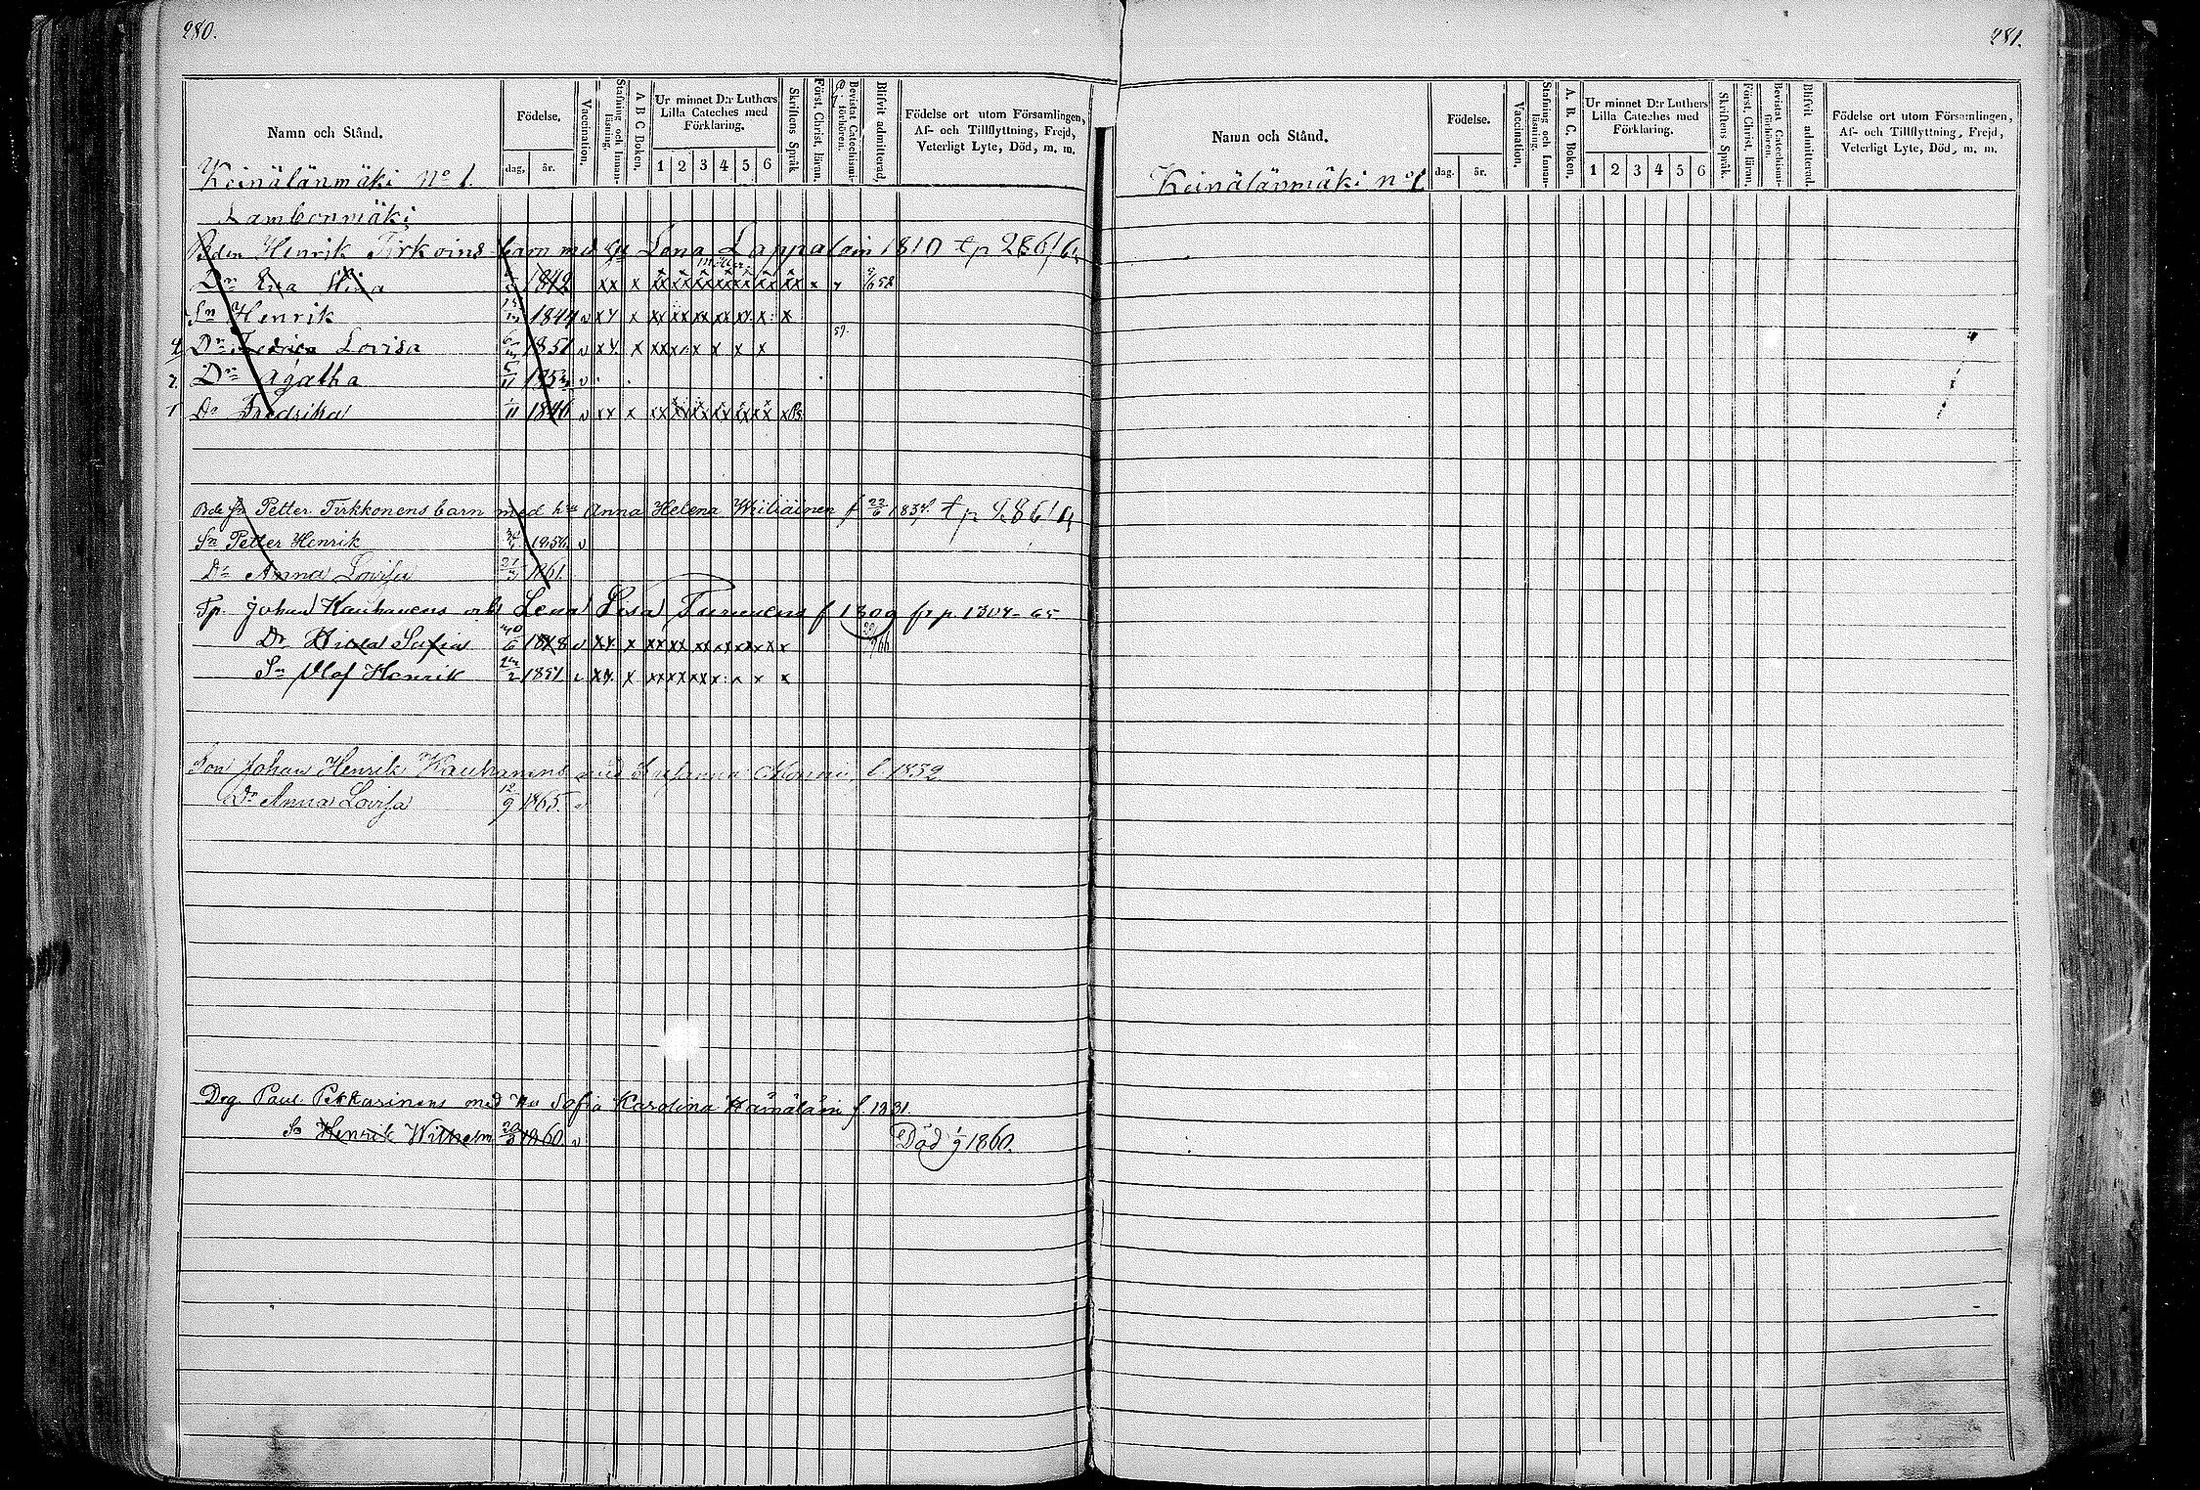 280.
Namn och Stånd. Födelse. dag, år. Vaccination. Stafning och Innanläsning. A B C Boken. Ur minnet D:r Luthers Lilla Cateches med Förklaring. 1 2 3 4 5 6 Skriftens Språk. Först. Christ. läran. Bevistat Catechismi-förhören. Blifvit admitterad. Födelse ort utom Församlingen, Af- och Tillflyttning, Frejd, Veterligt Lyte, Död, m. m.
Keinälänmäki No 1.
Lambonmäki
Bden Henrik Tirkoins barn med hu Lena Lappalain 1810 tp 286/64
Dr Eva Stina 1842 xx x x 9/6 58
Sn Henrik 1844 v xx x xx xx xx xx xx x x
4 Dr Fredrica Lovisa 1851 v xx x xx x x x x x 59.
7. Dr Agatha 5/11 1853 v
1 Do Fredrika 1/11 1846 v xx x
Bde sn Petter Tirkkonens barn med hu Anna Helena f 22/6 1834 tp 286/64
Sn Petter Henrik 1856. v
Dr Anna Lovisa 21/3 1861.
Tp. Johan Kauhanens och Lena Lisa Turunens f 1809 fr p. 1304 - 65
Dr Sofia 1848 v xx x
Sn Olof Henrik 1851. v xx x
Son Johan Henrik Kauhanens med Susanna f. 1832
Dr Anna Lovisa 12/9 1865. v
Drg Paul Pekkarinens med hu Sofia Karolina Hämäläin f 1831.
Sn Henrik Wilhelm 1860. v Död 1/9 1860.
281.
Namn och Stånd. Födelse. dag. år. Vaccination. Stafning och Innanläsning. A. B. C. Boken. Ur minnet D:r Luthers Lilla Cateches med Förklaring. 1 2 3 4 5 6 Skriftens Språk. Först. Christ. läran. Bevistat Catechismi-förhören. Blifvit admitterad. Födelse ort utom Församlingen, Af- och Tillflyttning, Frejd, Veterligt Lyte, Död, m. m.
Keinälänmäki No 1